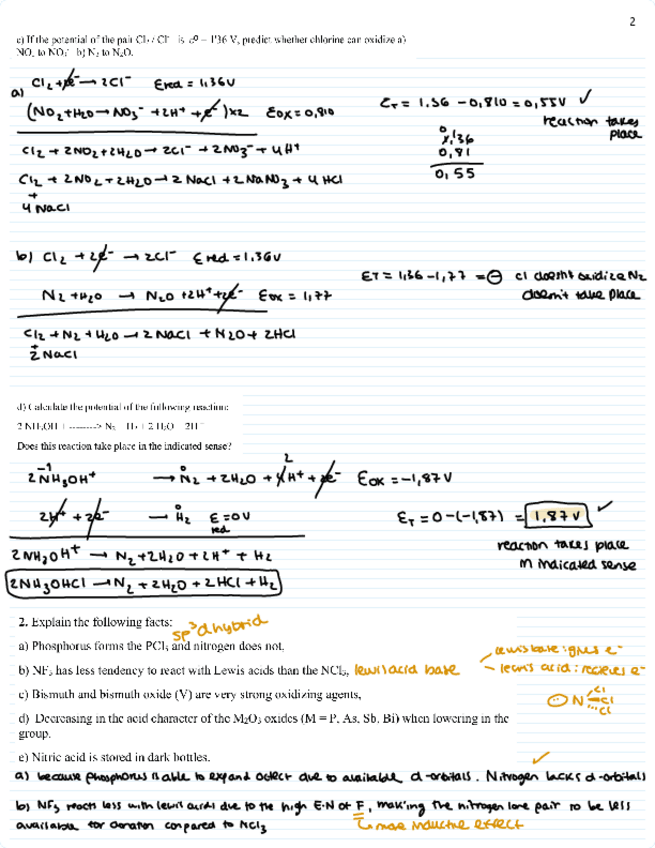 2
c) If the potential of the pair Cl₂ / Cl⁻ is ε⁰ = 1'36 V, predict whether chlorine can oxidize a)
NO₂ to NO₃⁻ b) N₂ to N₂O.
a) Cl₂ + 2e⁻ → 2Cl⁻ Ered = 1,36V
(NO₂ + H₂O → NO₃⁻ + 2H⁺ + e⁻) x2 EOX = 0,810
ET = 1.36 - 0,810 = 0,55V ✓
reaction takes
place
Cl₂ + 2NO₂ + 2H₂O → 2Cl⁻ + 2NO₃⁻ + 4H⁺
1,36
0,81
0,55
Cl₂ + 2NO₂ + 2H₂O → 2NaCl + 2NaNO₃ + 4HCl
+
4NaCl
b) Cl₂ + 2e⁻ → 2Cl⁻ Ered = 1,36V
ET = 1,36 - 1,77 = ⊖ Cl doesn't oxidize N₂
doesn't take place
N₂ + H₂O → N₂O + 2H⁺ + 2e⁻ EOX = 1,77
Cl₂ + N₂ + H₂O → 2NaCl + N₂O + 2HCl
+
2NaCl
d) Calculate the potential of the following reaction:
2 NH₃OH⁺ --------> N₂ H₂ + 2 H₂O 2H⁺
Does this reaction take place in the indicated sense?
2NH₃OH⁺ → N₂ + 2H₂O + 4H⁺ + 2e⁻ EOX = -1,87V
2H⁺ + 2e⁻ → H₂ E = 0V
red
ET = 0 - (-1,87) = 1,87V ✓
reaction takes place
in indicated sense
2NH₃OH⁺ → N₂ + 2H₂O + 2H⁺ + H₂
2NH₃OHCl → N₂ + 2H₂O + 2HCl + H₂
2. Explain the following facts:
sp³d hybrid
a) Phosphorus forms the PCl₅ and nitrogen does not,
b) NF₃ has less tendency to react with Lewis acids than the NCl₃, lewis acid base
lewis base: gives e⁻
lewis acid: recieves e⁻
c) Bismuth and bismuth oxide (V) are very strong oxidizing agents,
N Cl Cl Cl
d) Decreasing in the acid character of the M₂O₃ oxides (M = P, As, Sb, Bi) when lowering in the
group.
e) Nitric acid is stored in dark bottles.
a) because phosphorus is able to expand octect due to available d-orbitals. Nitrogen lacks d-orbitals
b) NF₃ reacts less with lewis acids due to the high E.N of F, making the nitrogen lone pair to be less
available for donation conpared to NCl₃
more inductive effect